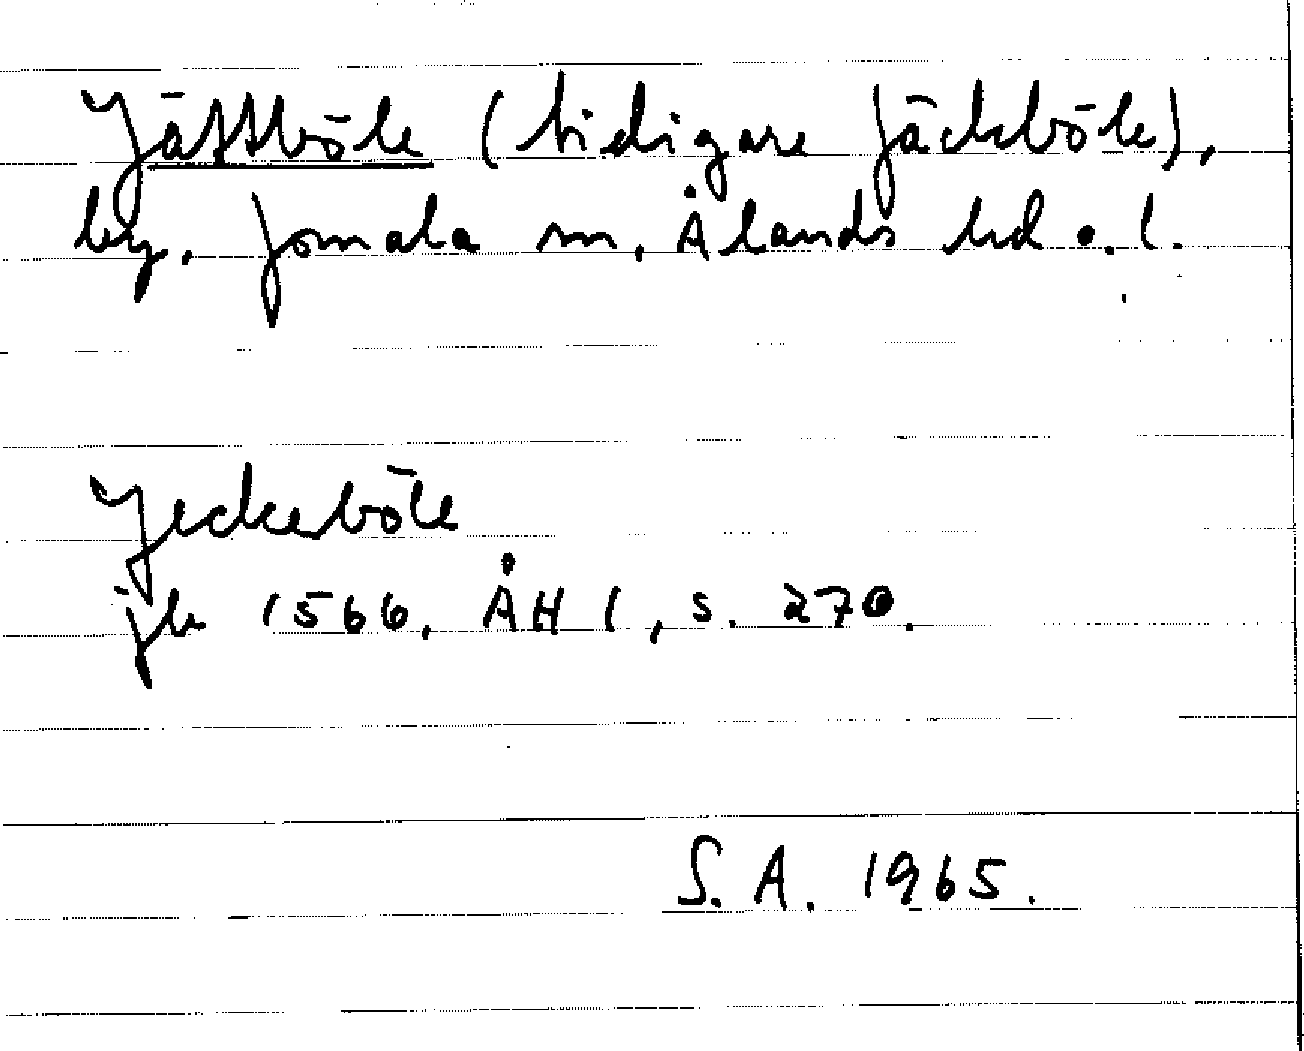 Jättböle (tidigare Jäckböle),
by, Jomala sn, Ålands hd o. l.
Jeckerböle
jb 1566, ÅH 1, s. 270.
S. A. 1965.